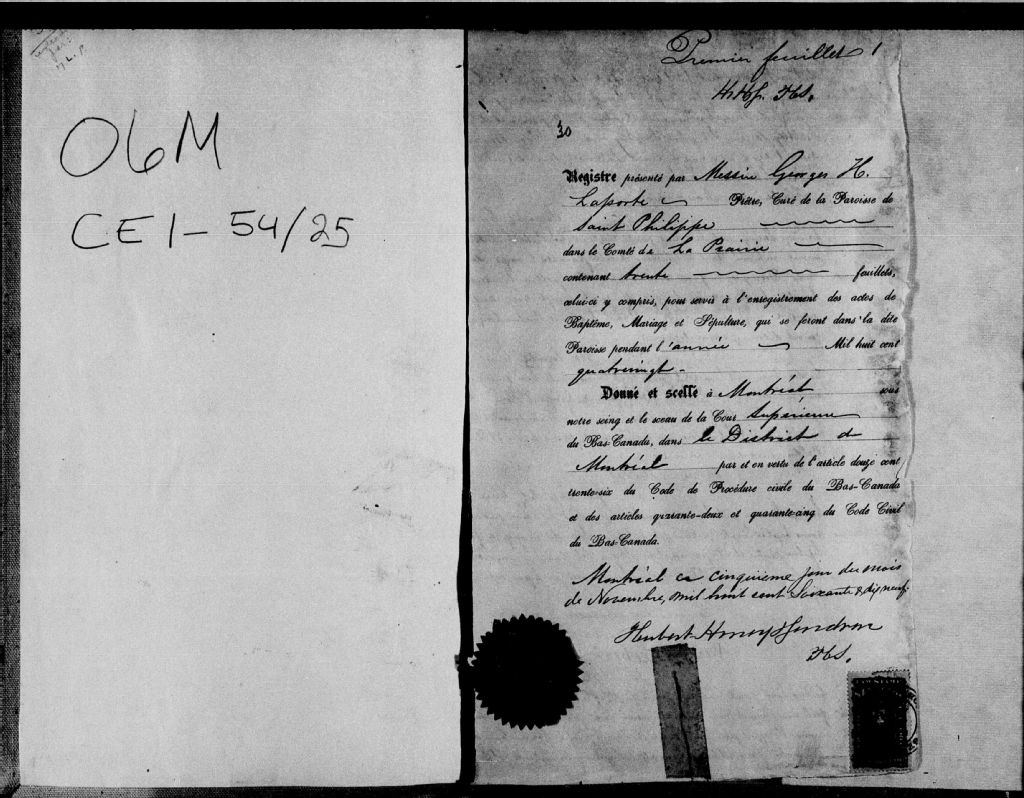 06M
CE1-54/25
Premier feuillet 1
30
Registre présenté par Messire Georges H.
Laporte Prêtre, Curé de la Paroisse de
Saint Philippe
dans le Comté de La Prairie
contenant trente feuillets,
celui-ci y compris, pour servir à l'enregistrement des actes de
Baptême, Mariage et Sépulture, qui se feront dans la dite
Paroisse pendant l'année Mil huit cent
quatrevingt-
Donné et scellé à Montréal sous
notre seing et le sceau de la Cour Supérieure
du Bas-Canada, dans le District de
Montréal par et en vertu de l'article douze cent
trente-six du Code de Procédure civile du Bas-Canada
et des articles quarante-deux et quarante-cinq du Code Civil
du Bas-Canada.
Montréal ce cinquième jour du mois
de Novembre, mil huit cent Soixante & dix neuf.